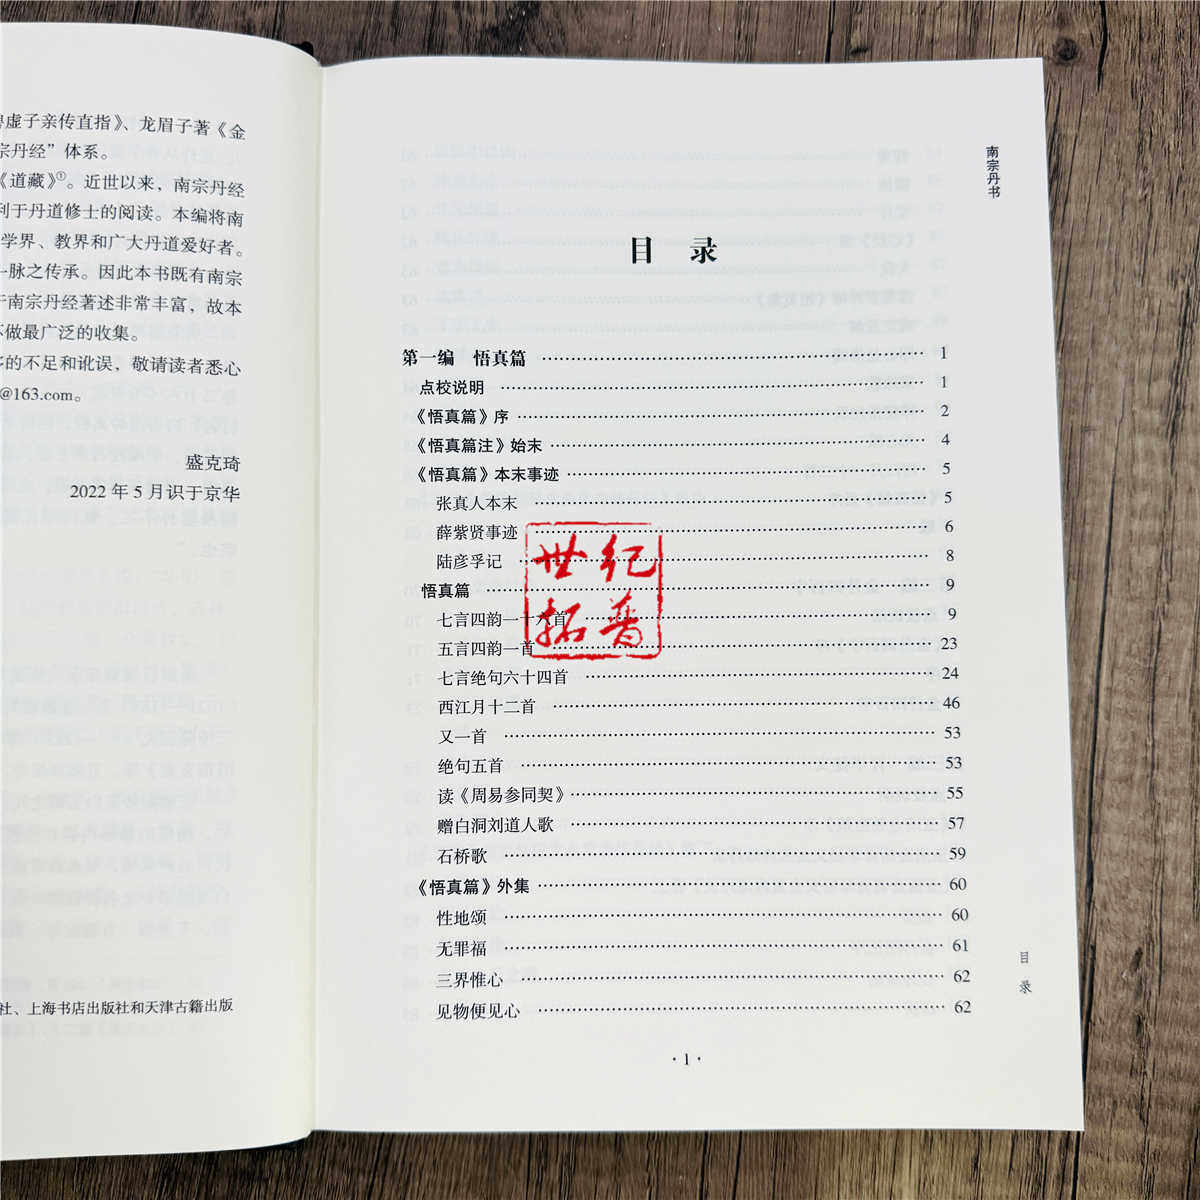 虚子亲传直指》、龙眉子著《金
宗丹经”体系。
《道藏》①。近世以来，南宗丹经
利于丹道修士的阅读。本编将南
学界、教界和广大丹道爱好者。
一脉之传承。因此本书既有南宗
于南宗丹经著述非常丰富，故本
做最广泛的收集。
的不足和讹误，敬请读者悉心
@163.com。
盛克琦
2022 年 5 月识于京华
社、上海书店出版社和天津古籍出版
南宗丹书
目 录
第一编 悟真篇 1
点校说明 1
《悟真篇》序 2
《悟真篇注》始末 4
《悟真篇》本末事迹 5
张真人本末 5
薛紫贤事迹 6
陆彦孚记 8
悟真篇 9
七言四韵一十六首 9
五言四韵一首 23
七言绝句六十四首 24
西江月十二首 46
又一首 53
绝句五首 53
读《周易参同契》 55
赠白洞刘道人歌 57
石桥歌 59
《悟真篇》外集 60
性地颂 60
无罪福 61
三界惟心 62
见物便见心 62
目录
· 1 ·
世纪
拓普